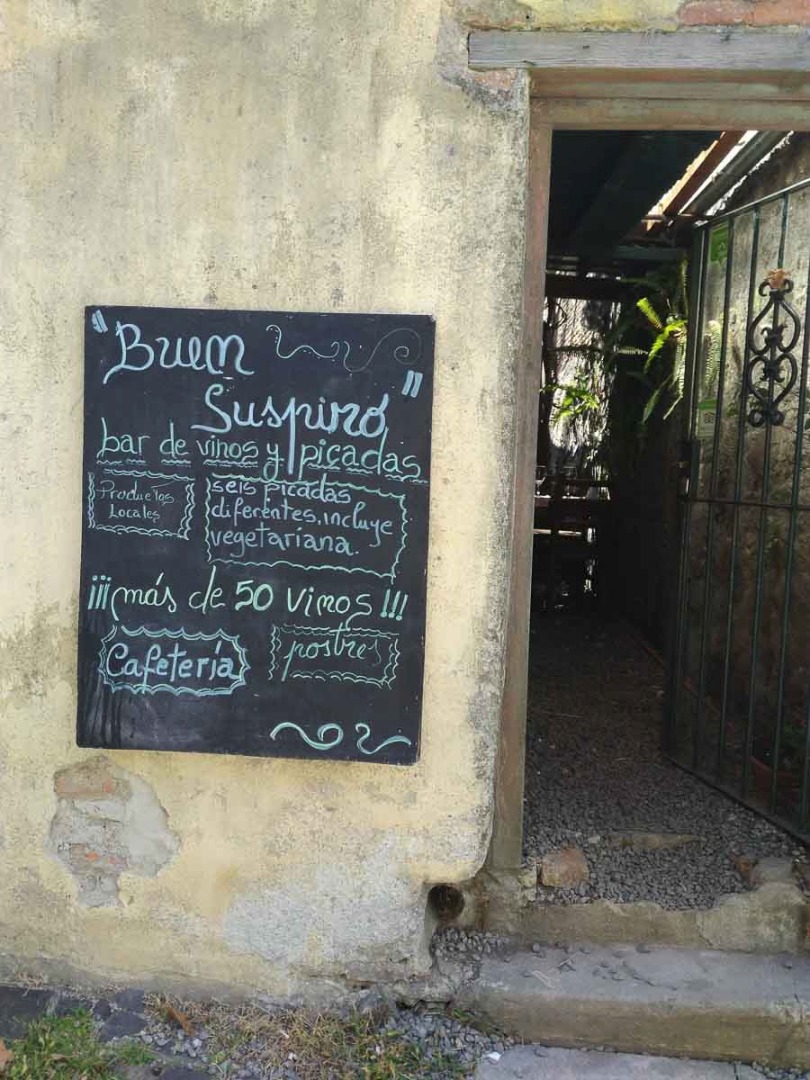 "Buen
Suspiro"
bar de vinos y picadas
Productos
Locales
seis picadas
diferentes, incluye
vegetariana.
¡¡¡más de 50 vinos!!!
Cafetería
postres